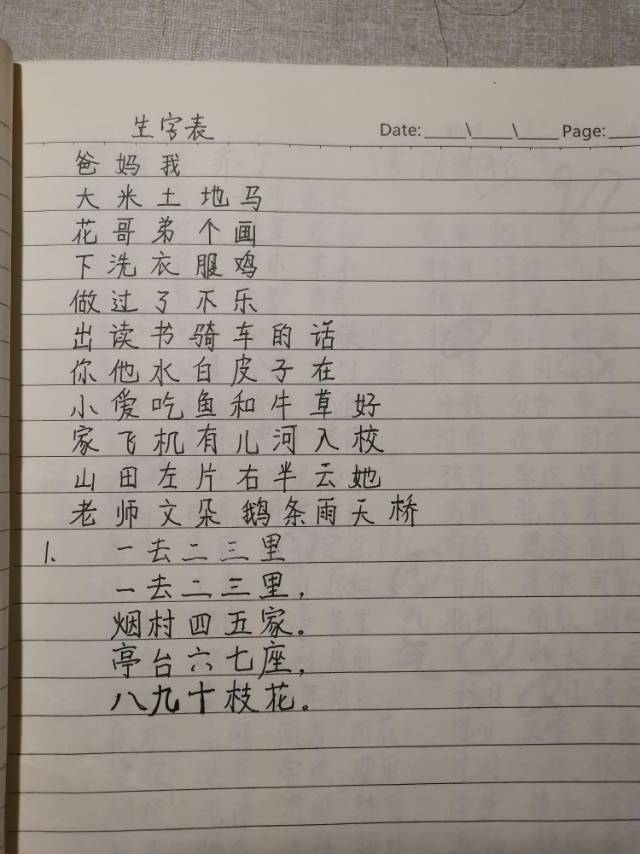 生字表
Date: ____\____\____ Page: __
爸妈我
大米土地马
花哥弟个画
下洗衣服鸡
做过了不乐
出读书骑车的话
你他水白皮子在
小爱吃鱼和牛草好
家飞机有儿河入校
山田左片右半云她
老师文朵鹅条雨天桥
1. 一去二三里
一去二三里,
烟村四五家。
亭台六七座,
八九十枝花。